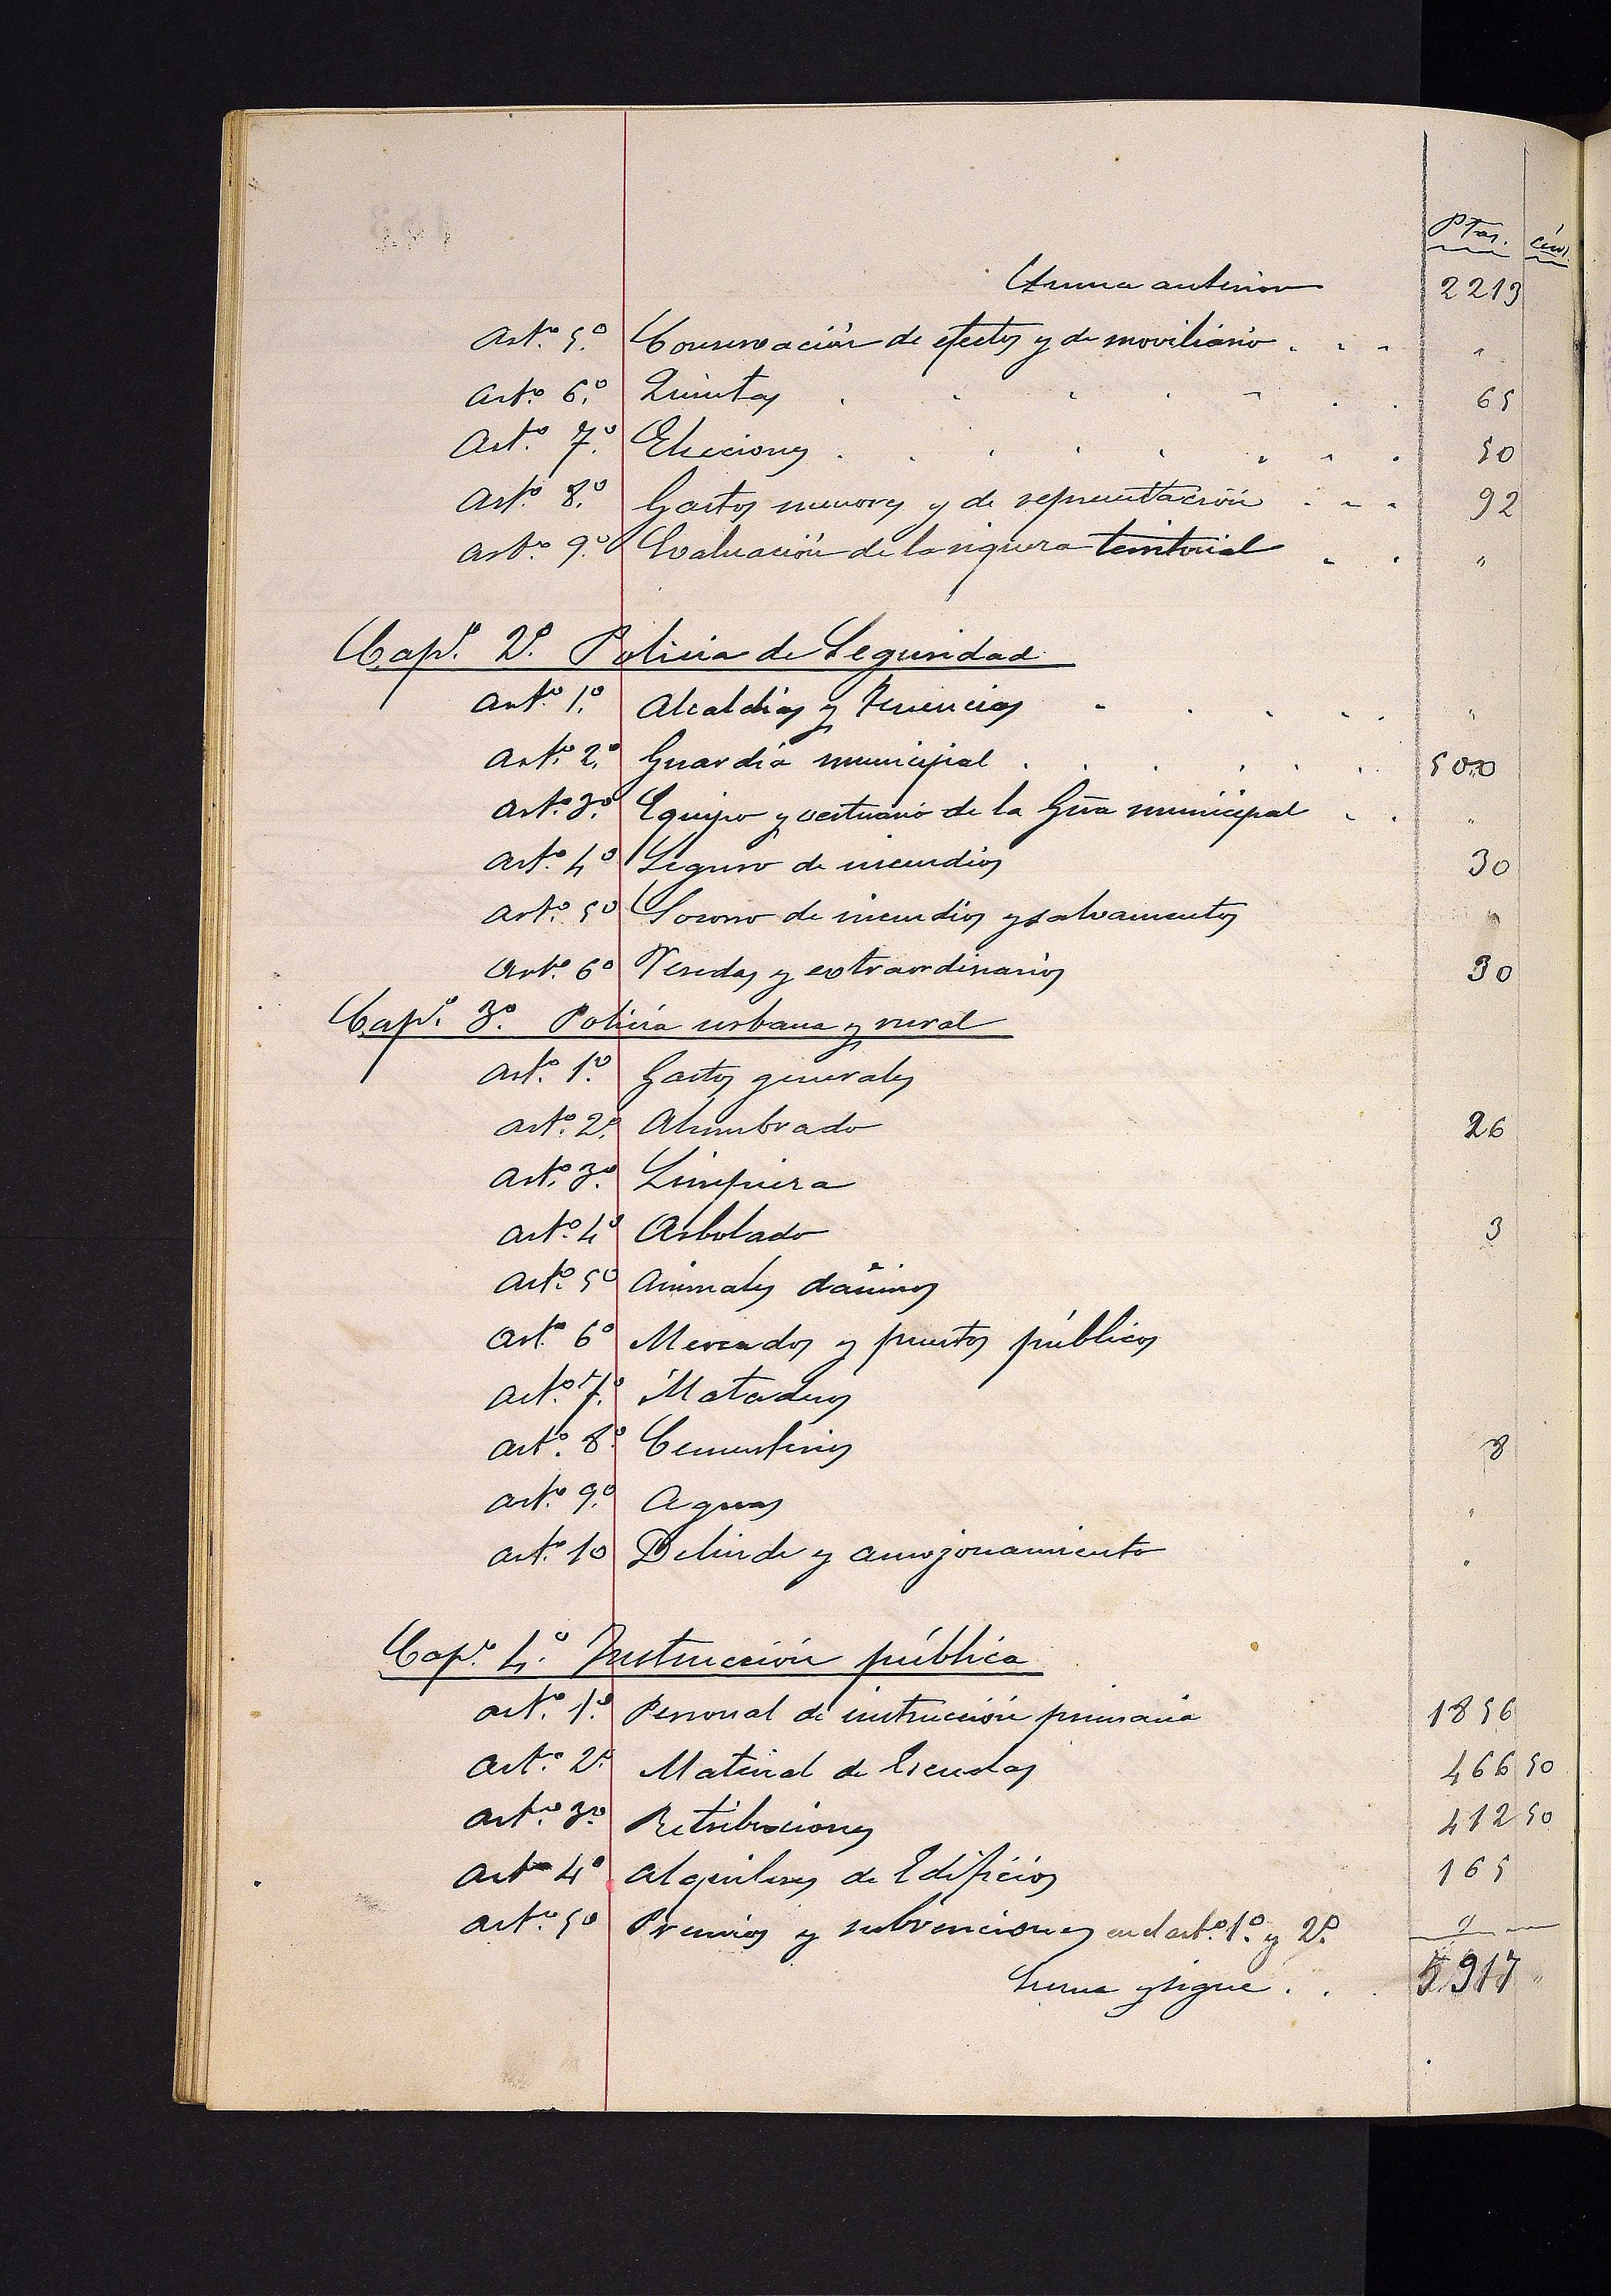 Ptas. cénts.
Suma anterior 2213
Artº 5º Conservación de efectos y de moviliario . . . "
Artº 6º Quintas . . . . . . . 65
Artº 7º Elecciones . . . . . . . . 50
Artº 8º Gastos menores y de representación . . . 92
Artº 9º Evaluación de la riqueza territorial . . "
Capº 2º Policia de Seguridad
Artº 1º Alcaldias y Tenencias . . . . . "
Artº 2º Guardia municipal . . . . . . 500
Artº 3º Equipo y vestuario de la Gª municipal . . "
Artº 4º Seguro de incendios 30
Artº 5º Socorro de incendios y salvamentos "
Artº 6º Veredas y extraordinarios 30
Capº 3º Policía urbana y rural
Artº 1º Gastos generales
Artº 2º Alumbrado 26
Artº 3º Limpieza
Artº 4º Arbolado 3
Artº 5º Animales dañinos
Artº 6º Mercados y puestos públicos
Artº 7º Mataderos
Artº 8º Cementerios 8
Artº 9º Aguas "
Artº 10 Delinde y amojonamiento "
Capº 4º Instrucción pública
Artº 1º Personal de instrucción primaria 1856
Artº 2º Material de Escuelas 466 50
Artº 3º Retribuciones 412 50
Artº 4º Alquileres de Edificios 165
Artº 5º Premios y subvenciones en el artº 1º y 2º "
Suma y sigue . . . 5917 "